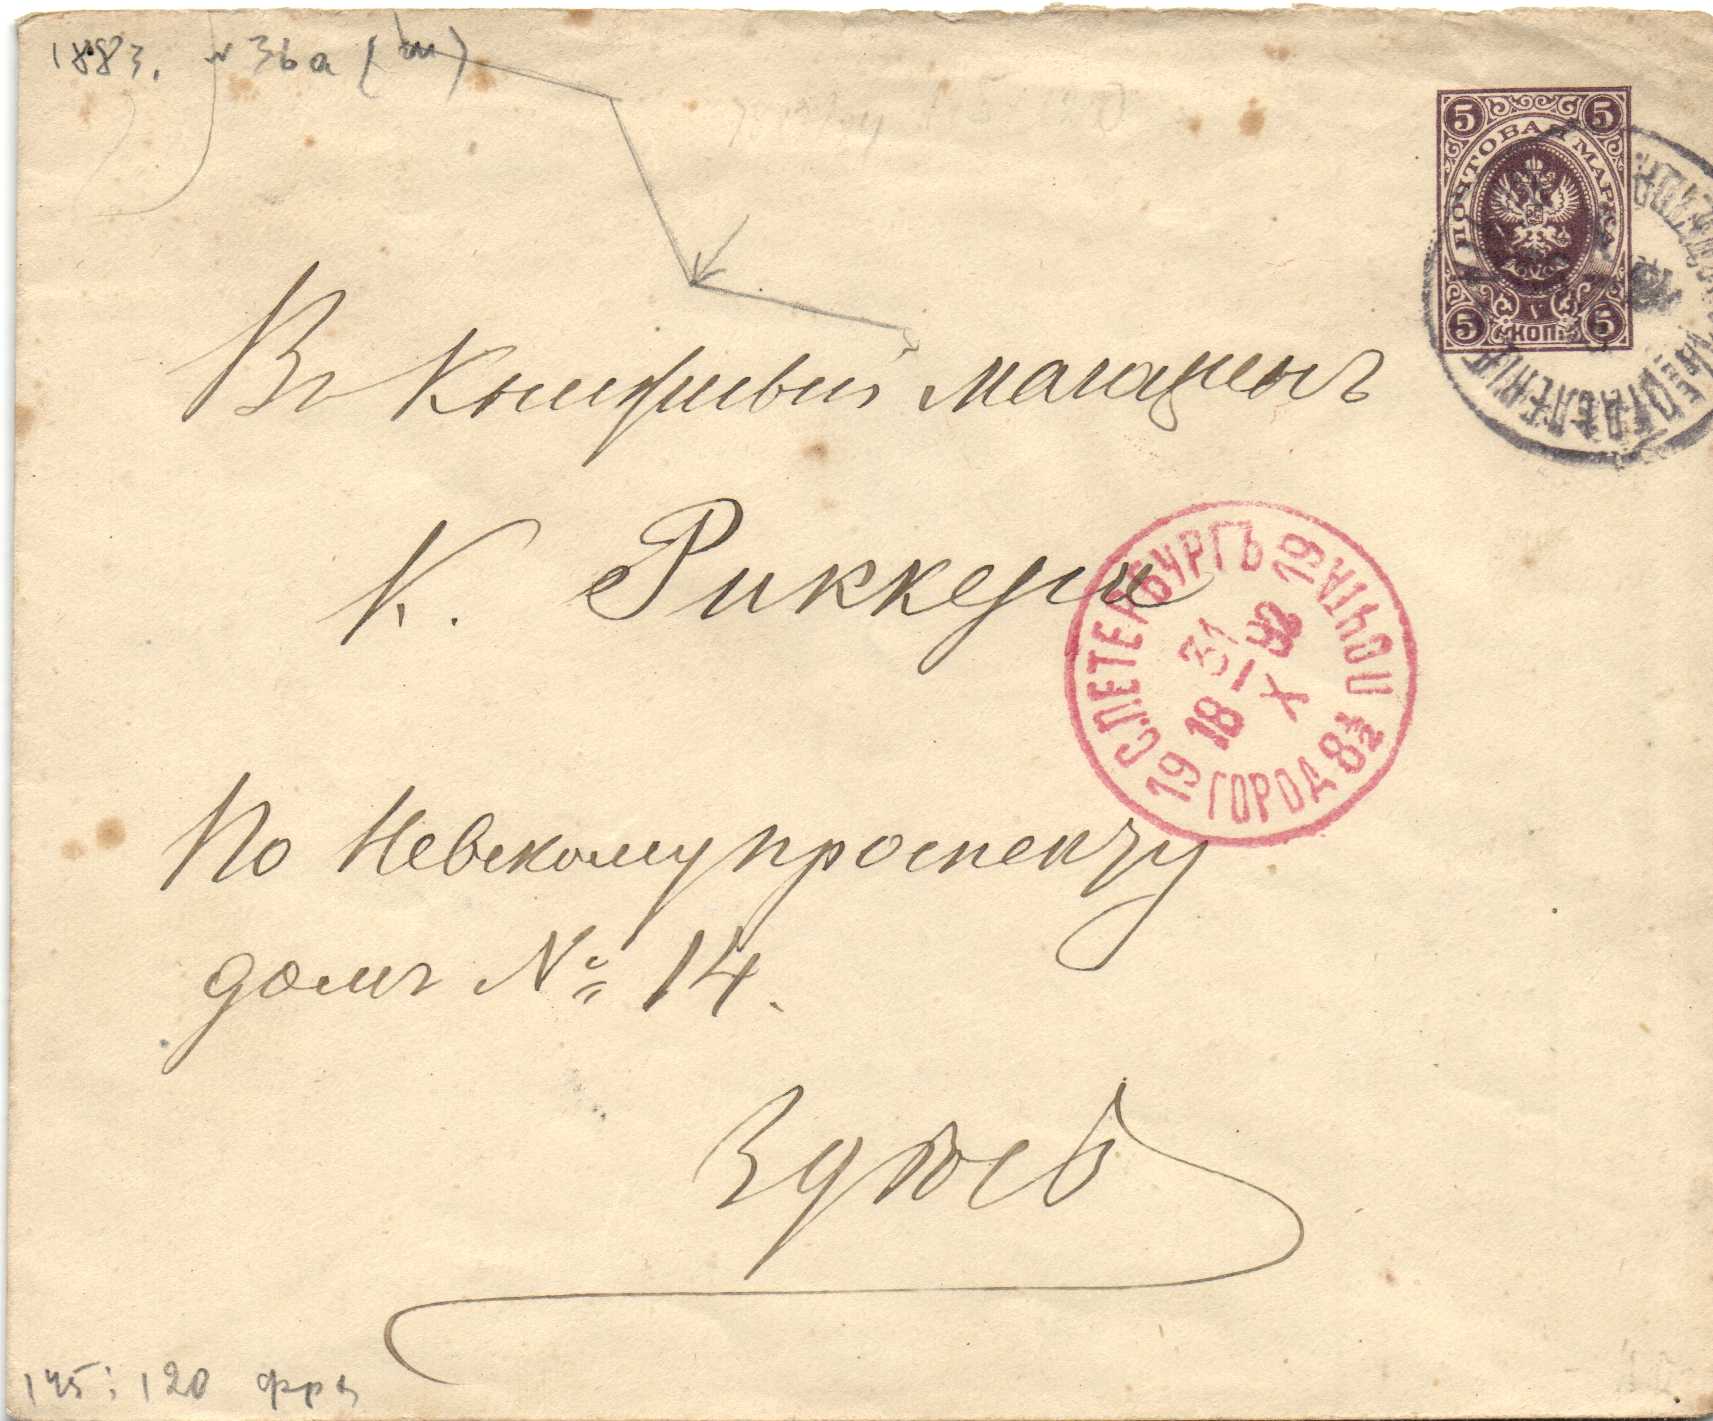 1883. № 36а
5 5
ПОЧТОВАЯ МАРКА
5 КОП. 5
ОТДѢЛЕНІЕ
Въ Книжный магазинъ
К. Риккера
С.ПЕТЕРБУРГЪ 19
ПОЧТА
31
18 – 92
X
19 ГОРОД 8½
По Невскому проспекту
домъ № 14.
Здѣсь
145 : 120